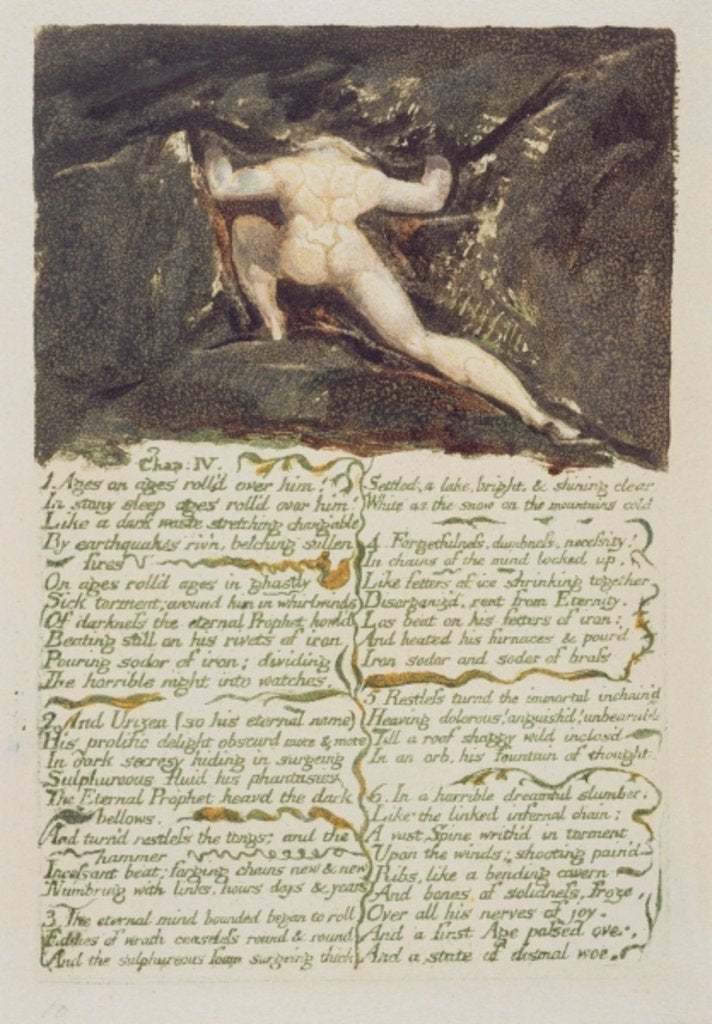 Chap: IV.
1. Ages on ages roll'd over him!
In stony sleep ages roll'd over him!
Like a dark waste stretching changable
By earthquakes riv'n, belching sullen
fires
On ages roll'd ages in ghastly
Sick torment; around him in whirlwinds
Of darkness the eternal Prophet howl'd
Beating still on his rivets of iron
Pouring sodor of iron; dividing
The horrible night into watches.
2. And Urizen (so his eternal name)
His prolific delight obscurd more & more
In dark secresy hiding in surgeing
Sulphureous fluid his phantasies.
The Eternal Prophet heavd the dark
bellows,
And turn'd restless the tongs; and the
hammer
Incessant beat; forging chains new & new
Numb'ring with links, hours, days & years
3. The eternal mind bounded began to roll
Eddies of wrath ceaseless round & round,
And the sulphureous foam surgeing thick
Settled, a lake, bright, & shining clear
White as the snow on the mountains cold.
4. Forgetfulness, dumbness, necessity!
In chains of the mind locked up,
Like fetters of ice shrinking together
Disorganiz'd, rent from Eternity.
Los beat on his fetters of iron;
And heated his furnaces & pour'd
Iron sodor and sodor of brass
5. Restless turnd the immortal inchain'd
Heaving dolorous! anguish'd! unbearable
Till a roof shaggy wild inclos'd
In an orb, his fountain of thought.
6. In a horrible dreamful slumber;
Like the linked infernal chain;
A vast Spine writh'd in torment
Upon the winds; shooting pain'd
Ribs, like a bending cavern
And bones of solidness, froze
Over all his nerves of joy.
And a first Age passed over,
And a state of dismal woe.